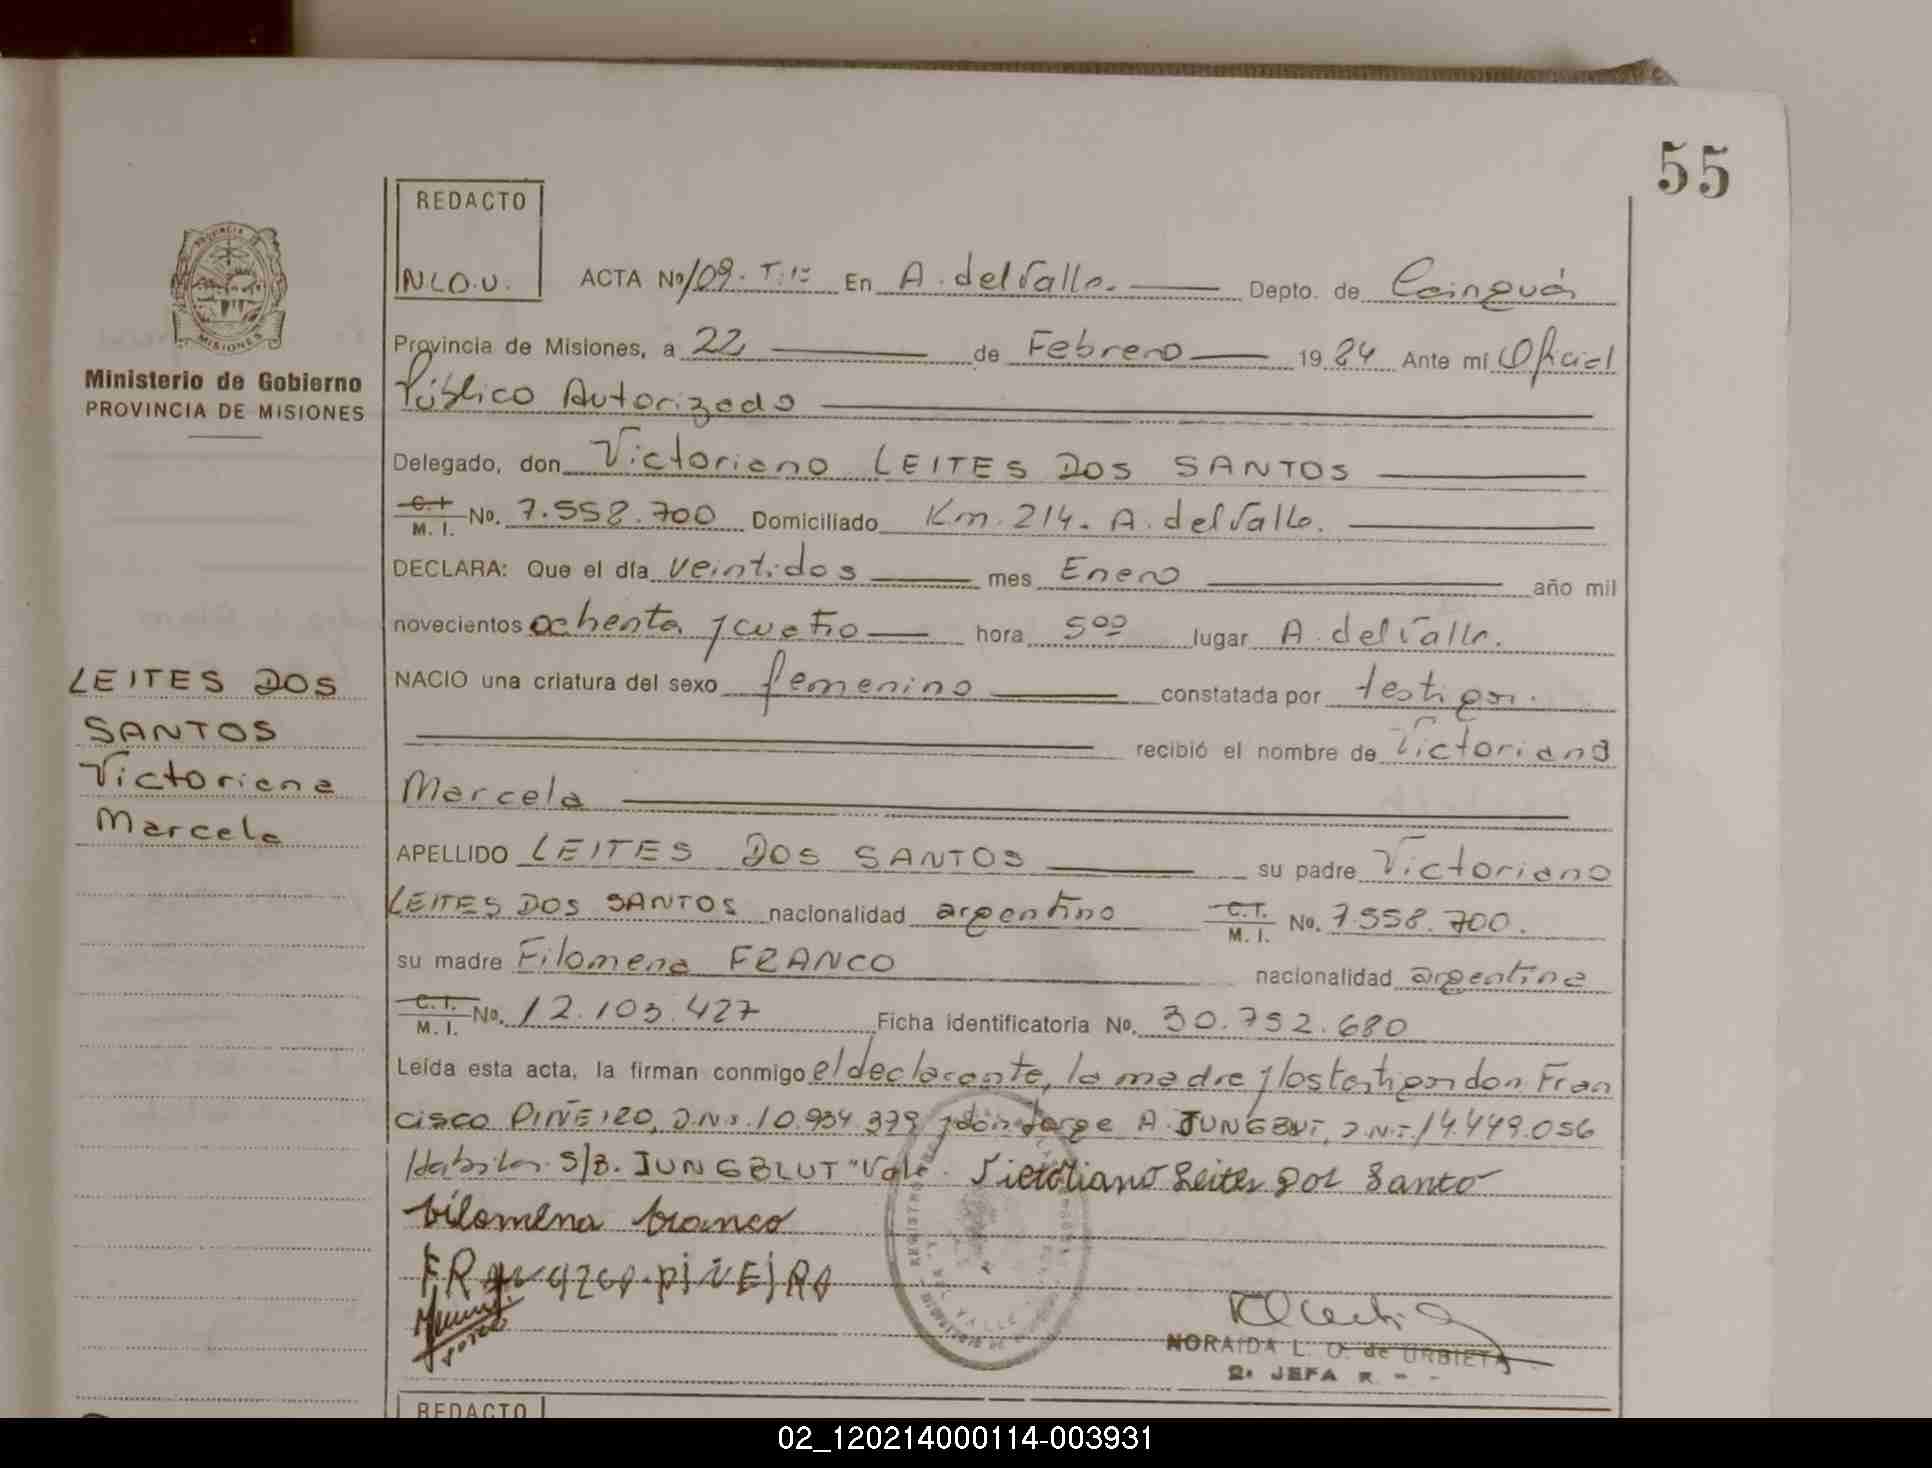 55
REDACTO
N.L.O.U.
ACTA No 109. T. 1º En A. del Valle. Depto. de Cainguás
Provincia de Misiones, a 22 de Febrero 1984 Ante mí Oficial
Público Autorizado
Delegado, don Victoriano LEITES DOS SANTOS
C.I. M. I. No. 7.558.700 Domiciliado Km. 214. A. del Valle.
DECLARA: Que el día veintidos mes Enero año mil
novecientos ochenta y cuatro hora 5ºº lugar A. del Valle.
NACIO una criatura del sexo femenino constatada por testigos.
recibió el nombre de Victoriana
Marcela
APELLIDO LEITES DOS SANTOS su padre Victoriano
LEITES DOS SANTOS nacionalidad argentino C.I. M. I. No. 7.558.700.
su madre Filomena FRANCO nacionalidad argentina
C.I. M. I. No. 12.103.427 Ficha identificatoria No. 30.752.680
Leída esta acta, la firman conmigo el declarante, la madre y los testigos don Fran
cisco PIÑEIRO, D.N.I. 10.934.379 y don Jorge A. JUNGBUT, D.N.I. 14.449.056
S/B. JUNGBLUT "Vale. Victoliano Leites Dos Santo
Filomena Franco
PIÑEIRO
NORAIDA L. O. de URBIETA
2ª JEFA R
REDACTO
PROVINCIA DE
MISIONES
Ministerio de Gobierno
PROVINCIA DE MISIONES
LEITES DOS
SANTOS
Victoriana
Marcela
02_120214000114-003931